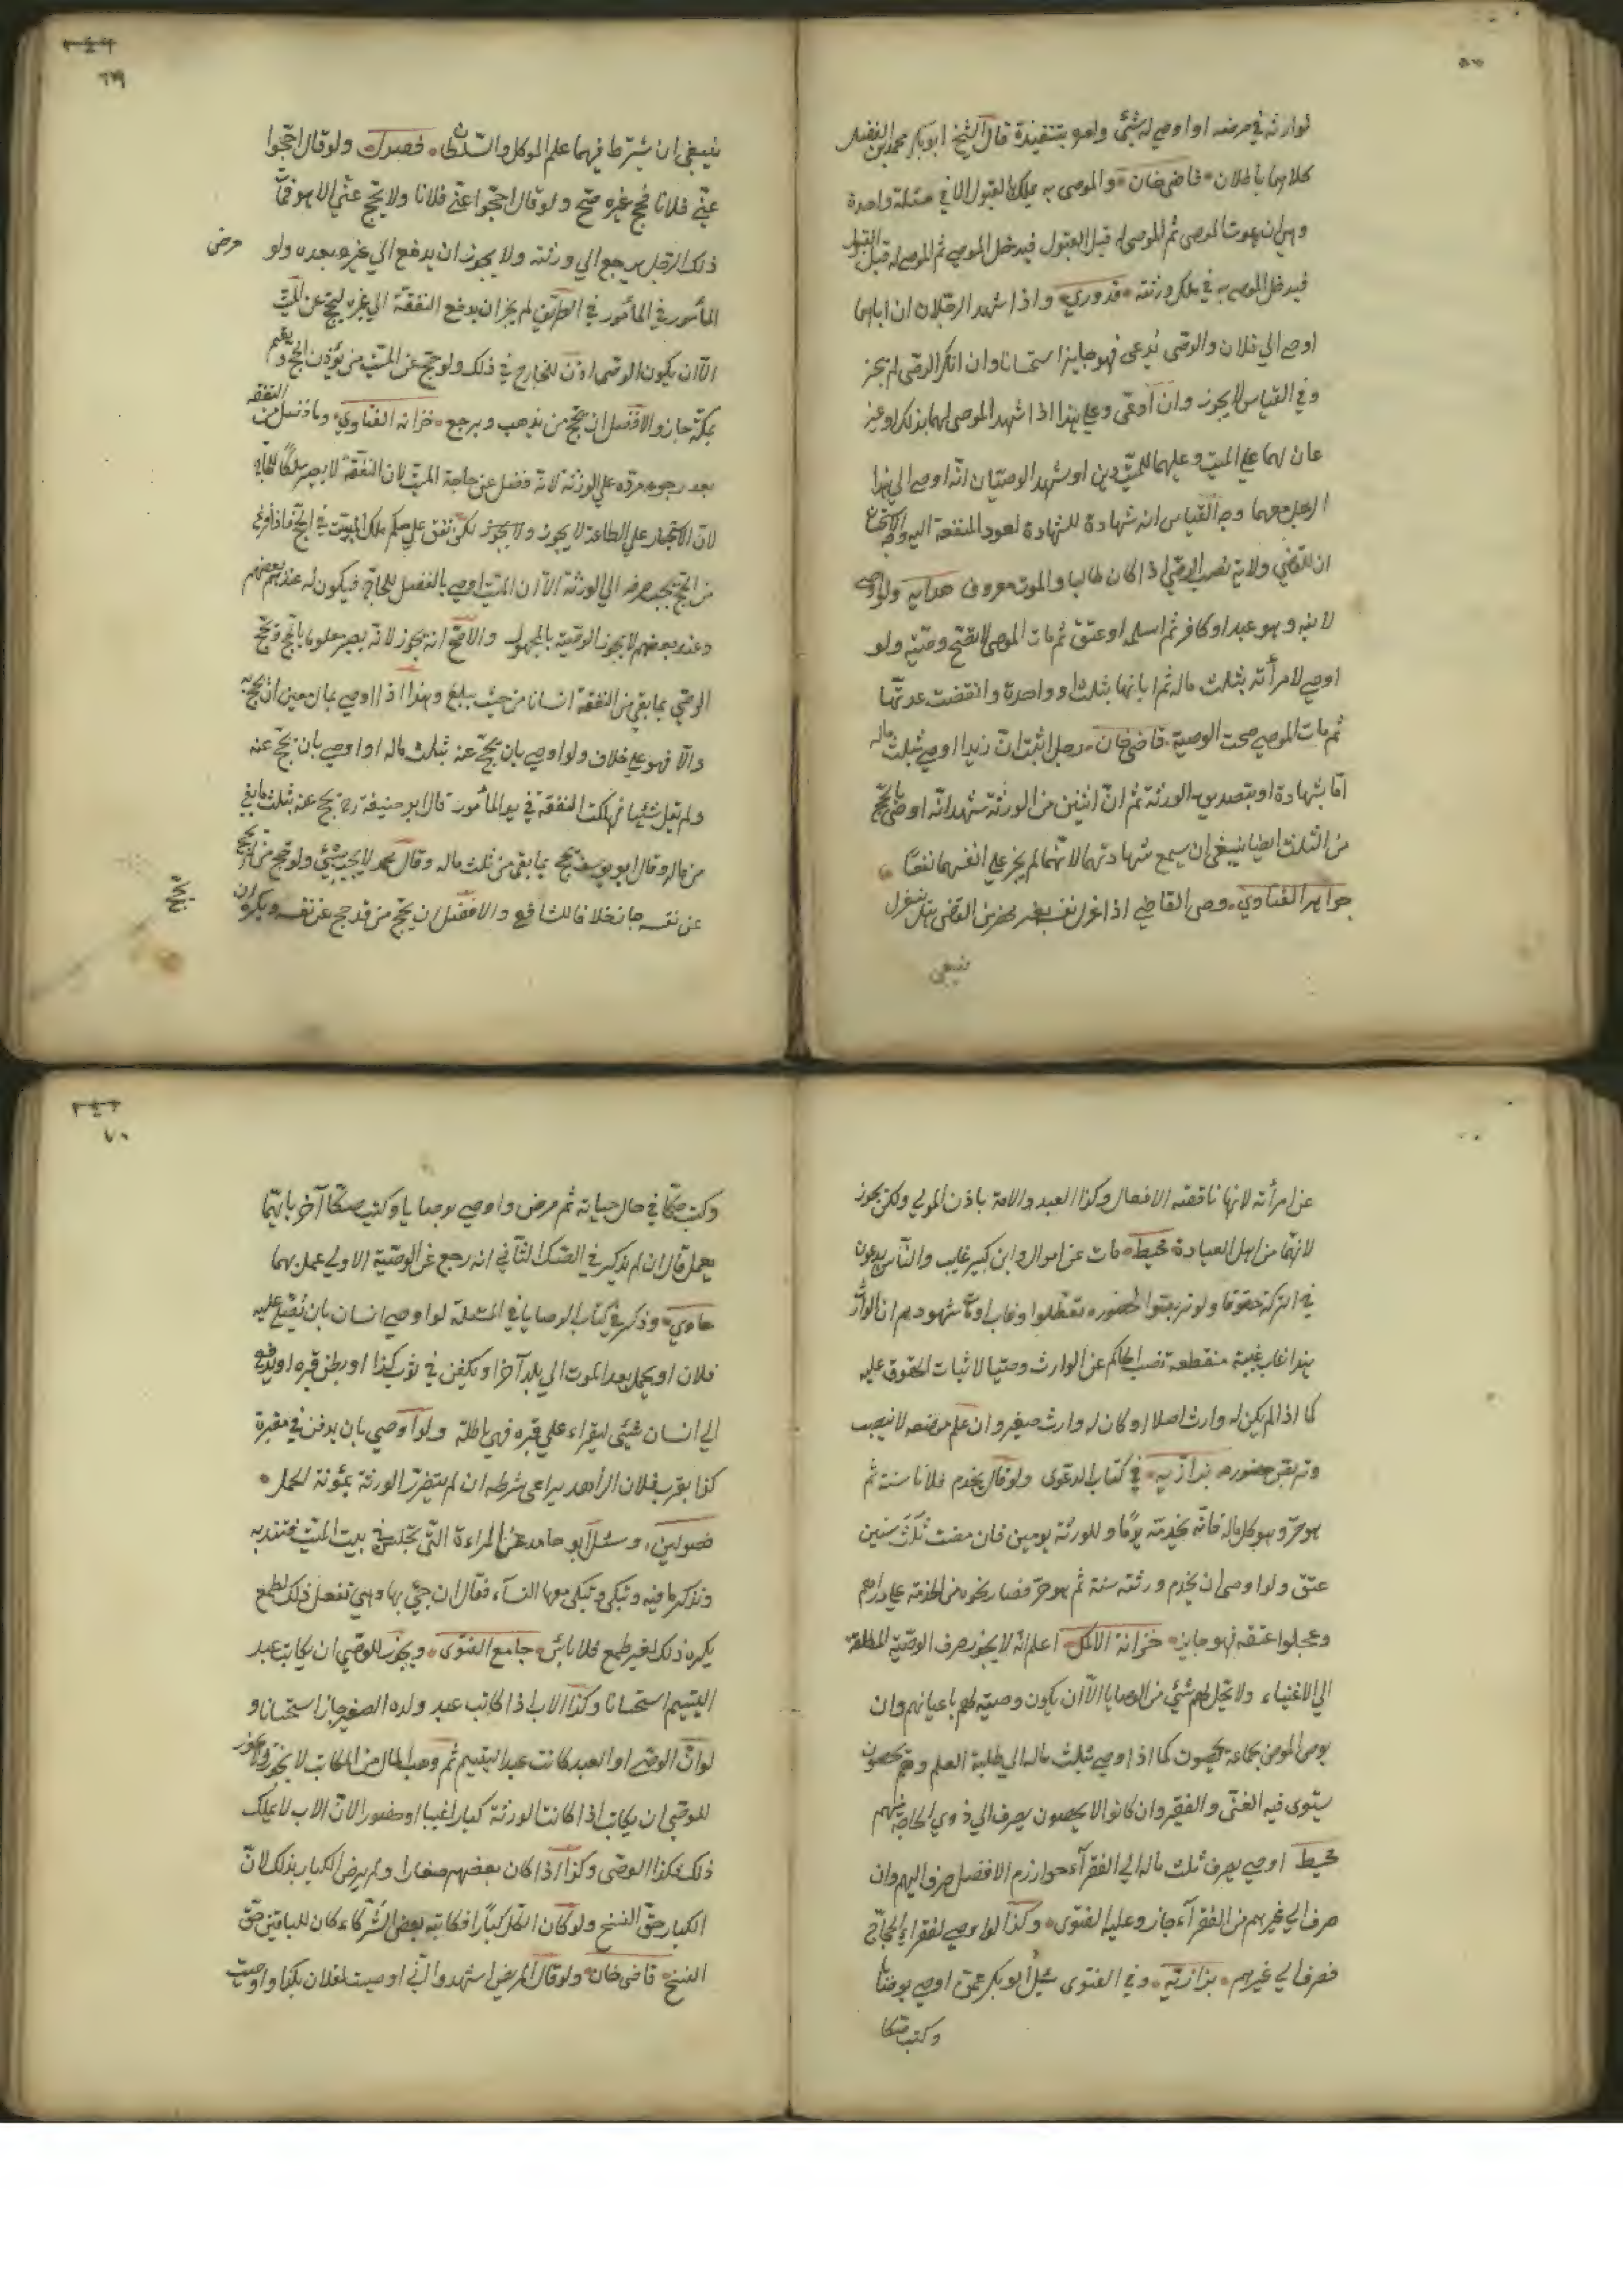 لوارثه في مرضه او اوصى له بشئ وامر بتنفيذة قال الشيخ ابو بكر محمد بن الفضل
كلاهما باطلان قاضى خان والموصى به يملك بالقبول الا في مسئلة واحدة
وهي ان يموت الموصى ثم الموصى له قبل القبول فيدخل الموصى ثم الموصى له قبل القبول
فيدخل الموصى به في ملك ورثته قدوري واذا شهد الرجلان ان اباهما
اوصى الى فلان والوصى يدعى فهو جايز استحسانا وان انكر الوصى لم يجز
وفي القياس لا يجوز وان ادعى وعلى هذا اذا شهد الموصى لهما بذلك او غريمان
لهما على الميت وعليهما للميت دين او شهد الوصيان انه اوصى الى هذا
الرجل معهما وجه القياس انه شهادة للشاهد لعود المنفعة اليه وجه الاستحسان
ان للقاضي ولاية نصب الوصي اذا كان طالبا والموت معروف هدايه ولو اوصى
لابنه وهو عبد او كافر ثم اسلم او عتق ثم مات الموصى لا تصح وصيته ولو
اوصى لامرأته بثلث ماله ثم ابانها بثلث او واحدة وانقضت عدتها
ثم مات الموصى صحت الوصية قاضى خان رجل اثبت ان زيدا اوصى بثلث ماله
اما بشهادة او بتصديق الورثة ثم ان اثنين من الورثة شهدا انه اوصى بالحج
من الثلث ايضا ينبغي ان يسمع شهادتهما لانهما لم يجز على انفسهما نفعا
جواهر الفتاوي وصى القاضى اذا عزل نفسه بغير محضر من القاضى هل ينعزل
ينبغي
٦٩
ينبغي ان يشترط فيهما علم الموكل والسلطان فصولين ولو قال احجوا
عنى فلانا فحج غيره صح ولو قال احجوا عنى فلانا ولا يحج عنى الا هو فمات
ذلك الرجل يرجع الى ورثته ولا يجوز ان يدفع الى غيره بعده ولو مرض
المأمور في الطريق لم يجز ان يدفع النفقة الى غيره ليحج عن الميت
الا ان يكون الوصى اذن للخارج في ذلك ولو حج عن الميت من يؤدى الحج ويقيم
بمكة جاز والافضل ان يحج من يذهب ويرجع خزانه الفتاوي وما فضل من النفقة
بعد رجوعه مرده على الورثة لانه فضل عن حاجة الميت لان النفقة لا يصير ملكا للحاج
لان الاستيجار على الطاعة لا يجوز لكن ينفق على حكم ملك الميت في الحج فاذا فرغ
من الحج يجب صرفه الى الورثة الا ان الميت اوصى بالفضل للحاج فيكون له عند بعضهم
وعند بعضهم لا يجوز الوصية بالمجهول والاصح انه يجوز لانه يصير معلوما بالحج ويحج
الوصي بما بقى من النفقة انسانا من حيث يبلغ وهذا اذا اوصى بمال معين ان يحج به
والا فهو على خلاف ولو اوصى بان يحج عنه بثلث ماله او اوصى بان يحج عنه
ولم يقل شئيا فهلكت النفقة في يد المأمور قال ابو حنيفة رح يحج عنه بثلث ما بقى
من ماله وقال ابو يوسف يحج بما بقى من ثلث ماله وقال محمد لا يجب شئ ولو حج من لم يحج
عن نفسه جاز خلافا للشافعي والافضل ان يحج من قد حج عن نفسه ويكره ان يحج
عن امرأته لانها ناقصة الافعال وكذا العبد والامة باذن المولى ولكن يجوز
لانهما من اهل العبادة محيط مات عن اموال وابن كبير غايب والناس يدعون
في التركة حقوقا ولو تربصوا لحضوره تعطلوا وغاب او مات شهودهم ان الوارث
هذا غاب غيبة منقطعة نصب الحاكم عن الوارث وصيا لاثبات الحقوق عليه
كما اذا لم يكن له وارث اصلا او كان له وارث صغير وان علم موضعه لا ينصب
وتربص حضوره بزازيه في كتاب الدعوى ولو قال يخدم فلانا سنة ثم
هو حر وهو كل ماله فانه يخدمه يوما وللورثة يومين فان مضت ثلث سنين
عتق ولو اوصى ان يخدم ورثته سنة ثم هو حر فصالحوه من الخدمة على دراهم
وعجلوا عتقه فهو جايز خزانة الاكمل اعلم انه لا يجوز صرف الوصية المطلقة
الى الاغنياء ولا تحل لهم شئ من الوصايا الا ان يكون وصية لهم باعيانهم وان
يوصى المومن بجماعة يحصون كما اذا اوصى بثلث ماله الى طلبة العلم وهم يحصون
يستوى فيه الغنى والفقير وان كانوا لا يحصون يصرف الى ذوي الحاجة منهم
محيط اوصى بصرف ثلث ماله الى الفقرآء خوارزم الافضل صرف اليهم وان
صرف الى غيرهم من الفقرآء جاز وعليه الفتوى وكذا لو اوصى لفقراء الحاج
فصرف الى غيرهم بزازيه وفي الفتوى سئل ابو بكر عمن اوصى بوصايا
وكتب صكا
٧٠
وكتب صكا في حال حياته ثم مرض واوصى بوصايا وكتب صكا آخر بايهما
يعمل قال ان لم يذكر في الصك الثاني انه رجع عن الوصية الاولى عمل بهما
حاوي وذكر في كتاب الوصايا في المسئلة لو اوصى انسان بان يصلى عليه
فلان او يحمل بعد الموت الى بلد آخر او يكفن في ثوب كذا او يطين قبره او يدفع
الى انسان شئى ليقراء على قبره فهى باطلة ولو اوصى بان يدفن في مقبرة
كذا بقرب فلان الزاهد يراعى شرطه ان لم يتضرر الورثة بمؤنة الحمل
فصولين وسئل ابو حامد عن المراءة التى تجلس في بيت الميت فتندبه
وتذكر ما فيه وتبكى وتبكى معها النساء فقال ان جئ بها وهي تفعل ذلك لطمع
يكره ذلك لغير طمع فلا بأس جامع الفتوى ويجوز للوصي ان يكاتب عبد
اليتيم استحسانا وكذا الاب اذا كاتب عبد ولده الصغير جاز استحسانا و
لو ان الوصى او العبد كاتب عبد اليتيم ثم وهب المال من المكاتب لا يجوز ولا يجوز
للوصى ان يكاتب اذا كانت الورثة كبارا غيبا او حضورا لان الاب لا يملك
ذلك فكذا الوصى وكذا اذا كان بعضهم صغارا ولم يرض الكبار بذلك لان
الكبار حق الفسخ ولو كان الكل كبارا فكاتبه بعض الشركاء كان للباقين حق
الفسخ قاضى خان ولو قال المريض اشهدوا انى اوصيت لفلان بكذا واوصيت